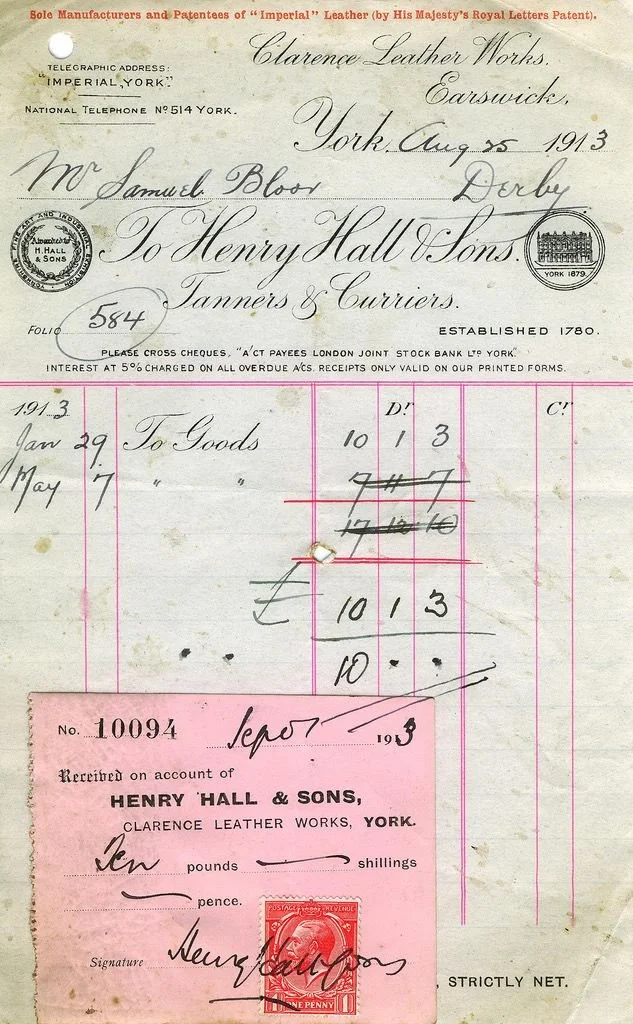 Sole Manufacturers and Patentees of "Imperial" Leather (by His Majesty's Royal Letters Patent).
Clarence Leather Works.
TELEGRAPHIC ADDRESS:
"IMPERIAL, YORK."
Earswick,
NATIONAL TELEPHONE No 514 YORK.
York, Aug 25 1913
Mr Samuel Bloor Derby
YORKSHIRE FINE ART AND INDUSTRIAL EXHIBITION
Awarded to
H. HALL
& SONS
To Henry Hall & Sons.
YORK 1879.
Tanners & Curriers.
FOLIO 584
ESTABLISHED 1780.
PLEASE CROSS CHEQUES, "A/CT PAYEES LONDON JOINT STOCK BANK LTD YORK."
INTEREST AT 5% CHARGED ON ALL OVERDUE A/CS. RECEIPTS ONLY VALID ON OUR PRINTED FORMS.
1913 Dr Cr
Jan 29 To Goods 10 1 3
May 7 " " 7 11 7
17 12 10
£ 10 1 3
10 . .
No. 10094 Sep 01 1913
Received on account of
HENRY HALL & SONS,
CLARENCE LEATHER WORKS, YORK.
Ten pounds — shillings
— pence.
POSTAGE REVENUE
Signature Henry Hall & Sons
1 ONE PENNY 1
, STRICTLY NET.